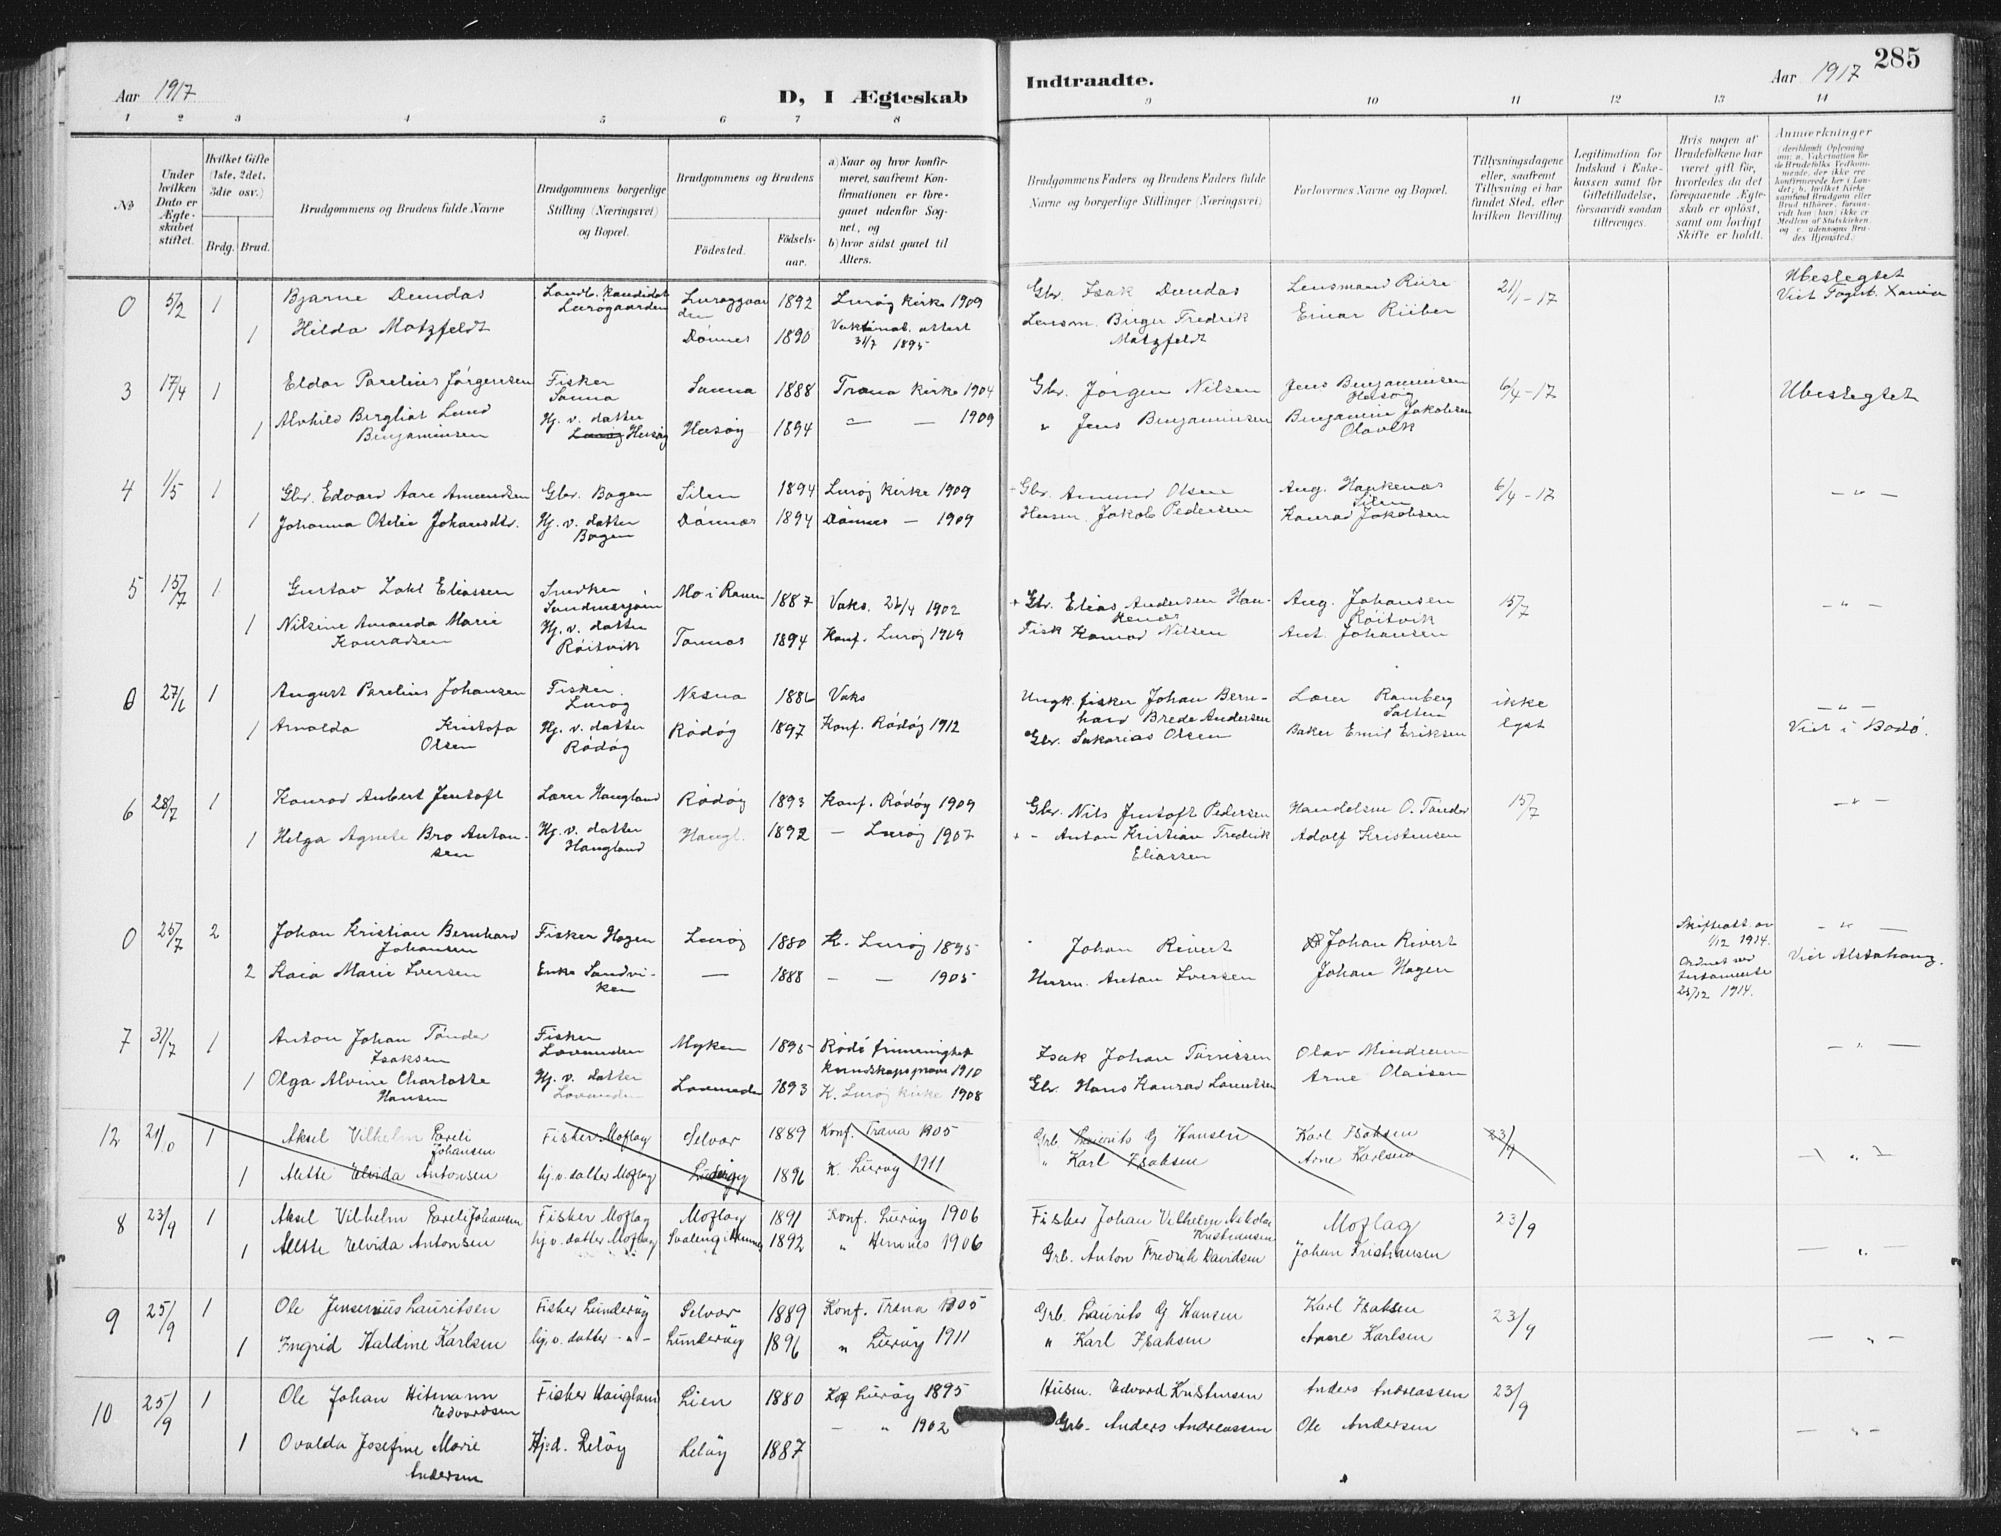 285
Aar 1917
D, I Ægteskab
Indtraadte.
Aar 1917
1 2 3 4 5 6 7 8 9 10 11 12 13 14
№
Under hvilken Dato er Ægteskabet stiftet.
Hvilket Gifte (1ste, 2det, 3die osv.)
Brdg. Brud.
Brudgommens og Brudens fulde Navne
Brudgommens borgerlige Stilling (Næringsvei) og Bopæl.
Brudgommens og Brudens
Födested.
Födselsaar.
a) Naar og hvor konfirmeret, saafremt Konfirmationen er foregaaet udenfor Sognet, og
b) hvor sidst gaaet til Alters.
Brudgommens Faders og Brudens Faders fulde Navne og borgerlige Stillinger (Næringsvei)
Forlovernes Navne og Bopæl.
Tillysningsdagene eller, saafremt Tillysning ei har fundet Sted, efter hvilken Bevilling.
Legitimation for Indskud i Enkekassen samt for Giftetilladelse, forsaavidt saadan tiltrænges.
Hvis nogen af Brudefolkene har været gift för, hvorledes da det foregaaende Ægteskab er oplöst, samt om lovligt Skifte er holdt.
Anmærkninger
(deriblandt Oplysning om: a. Vakcination for de Brudefolks Vedkommende, der ikke ere konfirmerede her i Landet; b. hvilket Kirkesamfund Brudgom eller Brud tilhörer, forsaavidt han (hun) ikke er Medlem af Statskirken, og c. udensogns Brudes Hjemsted.)
0 5/2 1 Bjarne Dundas Landb. kandidat Lurøgaarden Lurøygaarden 1892 Lurøy kirke 1909 Gbr. Isak Dundas Lensmand Riise 21/1-17 Ubeslegtet
1 Hilda Motzfeldt Dönnes 1890 Vaksinat. attest 31/7 1895 Lensm. Birger Fredrik Motzfeldt Einar Riiber
3 17/4 1 Eldor Parelius Jörgensen Fisker Sanna Sanna 1888 Træna kirke 1904 Gbr. Jörgen Nilsen Jens Benjaminsen Husöy 6/4-17 Ubeslegtet
1 Alvhild Bergliot Lund Benjaminsen Hj. v. datter Husöy Husöy 1894 — — 1909 " Jens Benjaminsen Benjamin Jakobsen
4 1/5 1 Gbr. Edvard Aare Amundsen Gbr. Bogen Silen 1894 Luröy kirke 1909 + Gbr. Amund Olsen Aug. Haukenæs Silen 6/4-17 — " —
1 Johanna Otelie Johansdtr. Hj. v. datter Bogen Dönnæs 1894 Dönnæs — 1909 Husm. Jakob Pedersen Konrad Jakobsen
5 15/7 1 Gustav Zakl Eliassen Snedker Mo i Ranen 1887 Vaks. 26/4 1902 + Gbr. Elias Andersen Haukenæs Aug. Johansen Röitvik 15/7 — " —
1 Nilsine Amanda Marie Konradsen Hj. v. datter Röitvik Tonnes 1894 Konf. Luröy 1909 Fisk Konrad Nilsen Ant. Johansen
0 27/6 1 August Parelius Johansen Fisker. Luröy Nesna 1886 Vaks Ungk. fisker Johan Bernhard Brede Andersen Lærer Ramberg Salten ikke — " —
1 Arnolda Kristofa Olsen Hj. v. datter Rödöy Rödöy 1897 Konf. Rödöy 1912 Gbr. Sakarias Olsen Baker Emil Eriksen lyst Viet i Bodö.
6 28/7 1 Konrad Anbert Jentoft Lærer Haugland Rödöy 1893 Konf. Rödöy 1909 Gbr. Nils Jentoft Pedersen Handelsm O. Tönder 15/7 — " —
1 Helga Agnete Bro Antonsen Hj. v. datter Haugland Haugl. 1892 — Luröy 1907 + — Anton Kristian Fredrik Eliassen Adolf Kristensen
0 25/7 2 Johan Kristian Bernhard Johansen Fisker Hagen Luröy 1880 K. Luröy 1895 Johan Rivert Johan Rivert Skifteatt. av 1/12 1914. — " —
2 Kaia Marie Iversen Enke Sandviken — 1888 — — 1905 Husm. Anton Iversen Johan Hagen Ordnet ved testamente 23/12 1914. Viet Alstahaug.
7 31/7 1 Anton Johan Tönder Isaksen Fisker Lovunden Myken 1895 Rödö kundskapspröve 1910 Isak Johan Tönnesen Olav Mindrum — " —
1 Olga Alvine Charlotte Hansen Hj. v. datter Lovunden Lovunden 1893 K. Luröy kirke 1908 Gbr. Hans Konrad Lorentsen Arne Olaisen
12 21/0 1 Aksel Vilhelm Pareli Johansen Fisker Moflag Selvær 1889 Konf. Træna 1905 Grb. Laurits G Hansen Karl Isaksen 23/9
1 Alette Elvida Antonsen hj. v. datter Moflag 1896 K. Luröy 1911 " Karl Isaksen Arne Karlsen — " —
8 23/9 1 Aksel Vilhelm Pareli Johansen Fisker Moflag Moflag 1891 Konf. Luröy 1906 Fisker Johan Vilhelm Nikolai Kristiansen Moflag 23/9
1 Alette Elvida Antonsen hj. v. datter Moflag Svaleng i Hemnes 1892 " Hemnes 1906 Grb. Anton Fredrik Davidsen Johan Kristiansen — " —
9 25/9 1 Ole Jensenius Lauritsen Fisker Lunderöy Selvær 1889 Konf. Træna 1905 Grb. Laurits G Hansen Karl Isaksen 23/9
1 Ingrid Haldine Karlsen hj. v. datter — " — Lunderöy 1896 " Luröy 1911 " Karl Isaksen Arne Karlsen — " —
10 25/9 1 Ole Johan Hitmann Edvardsen Fisker Haugland Lien 1880 Luröy 1895 Husm. Edvard Kristensen Anders Andreassen 23/9
1 Ovalda Josefine Marie Andersen Hj.d. Relöy Relöy 1887 — " 1902 Grb. Anders Andreassen Ole Andersen — " —